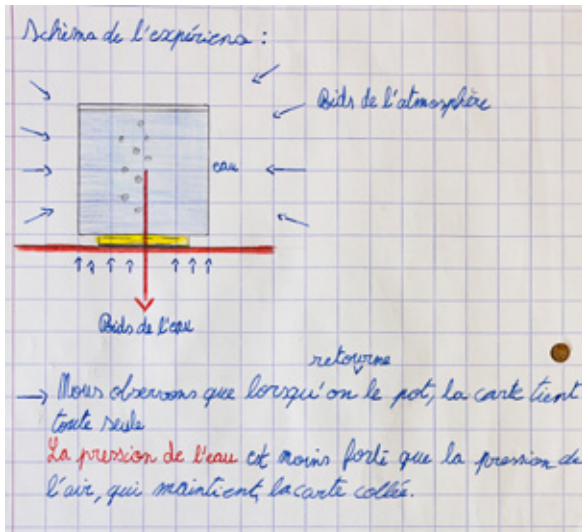 Schéma de l'expérience :
Poids de l'atmosphère
eau
Poids de l'eau
retourne
→ Nous observons que lorsqu'on le pot, la carte tient
toute seule
La pression de l'eau est moins forte que la pression de
l'air, qui maintient la carte collée.